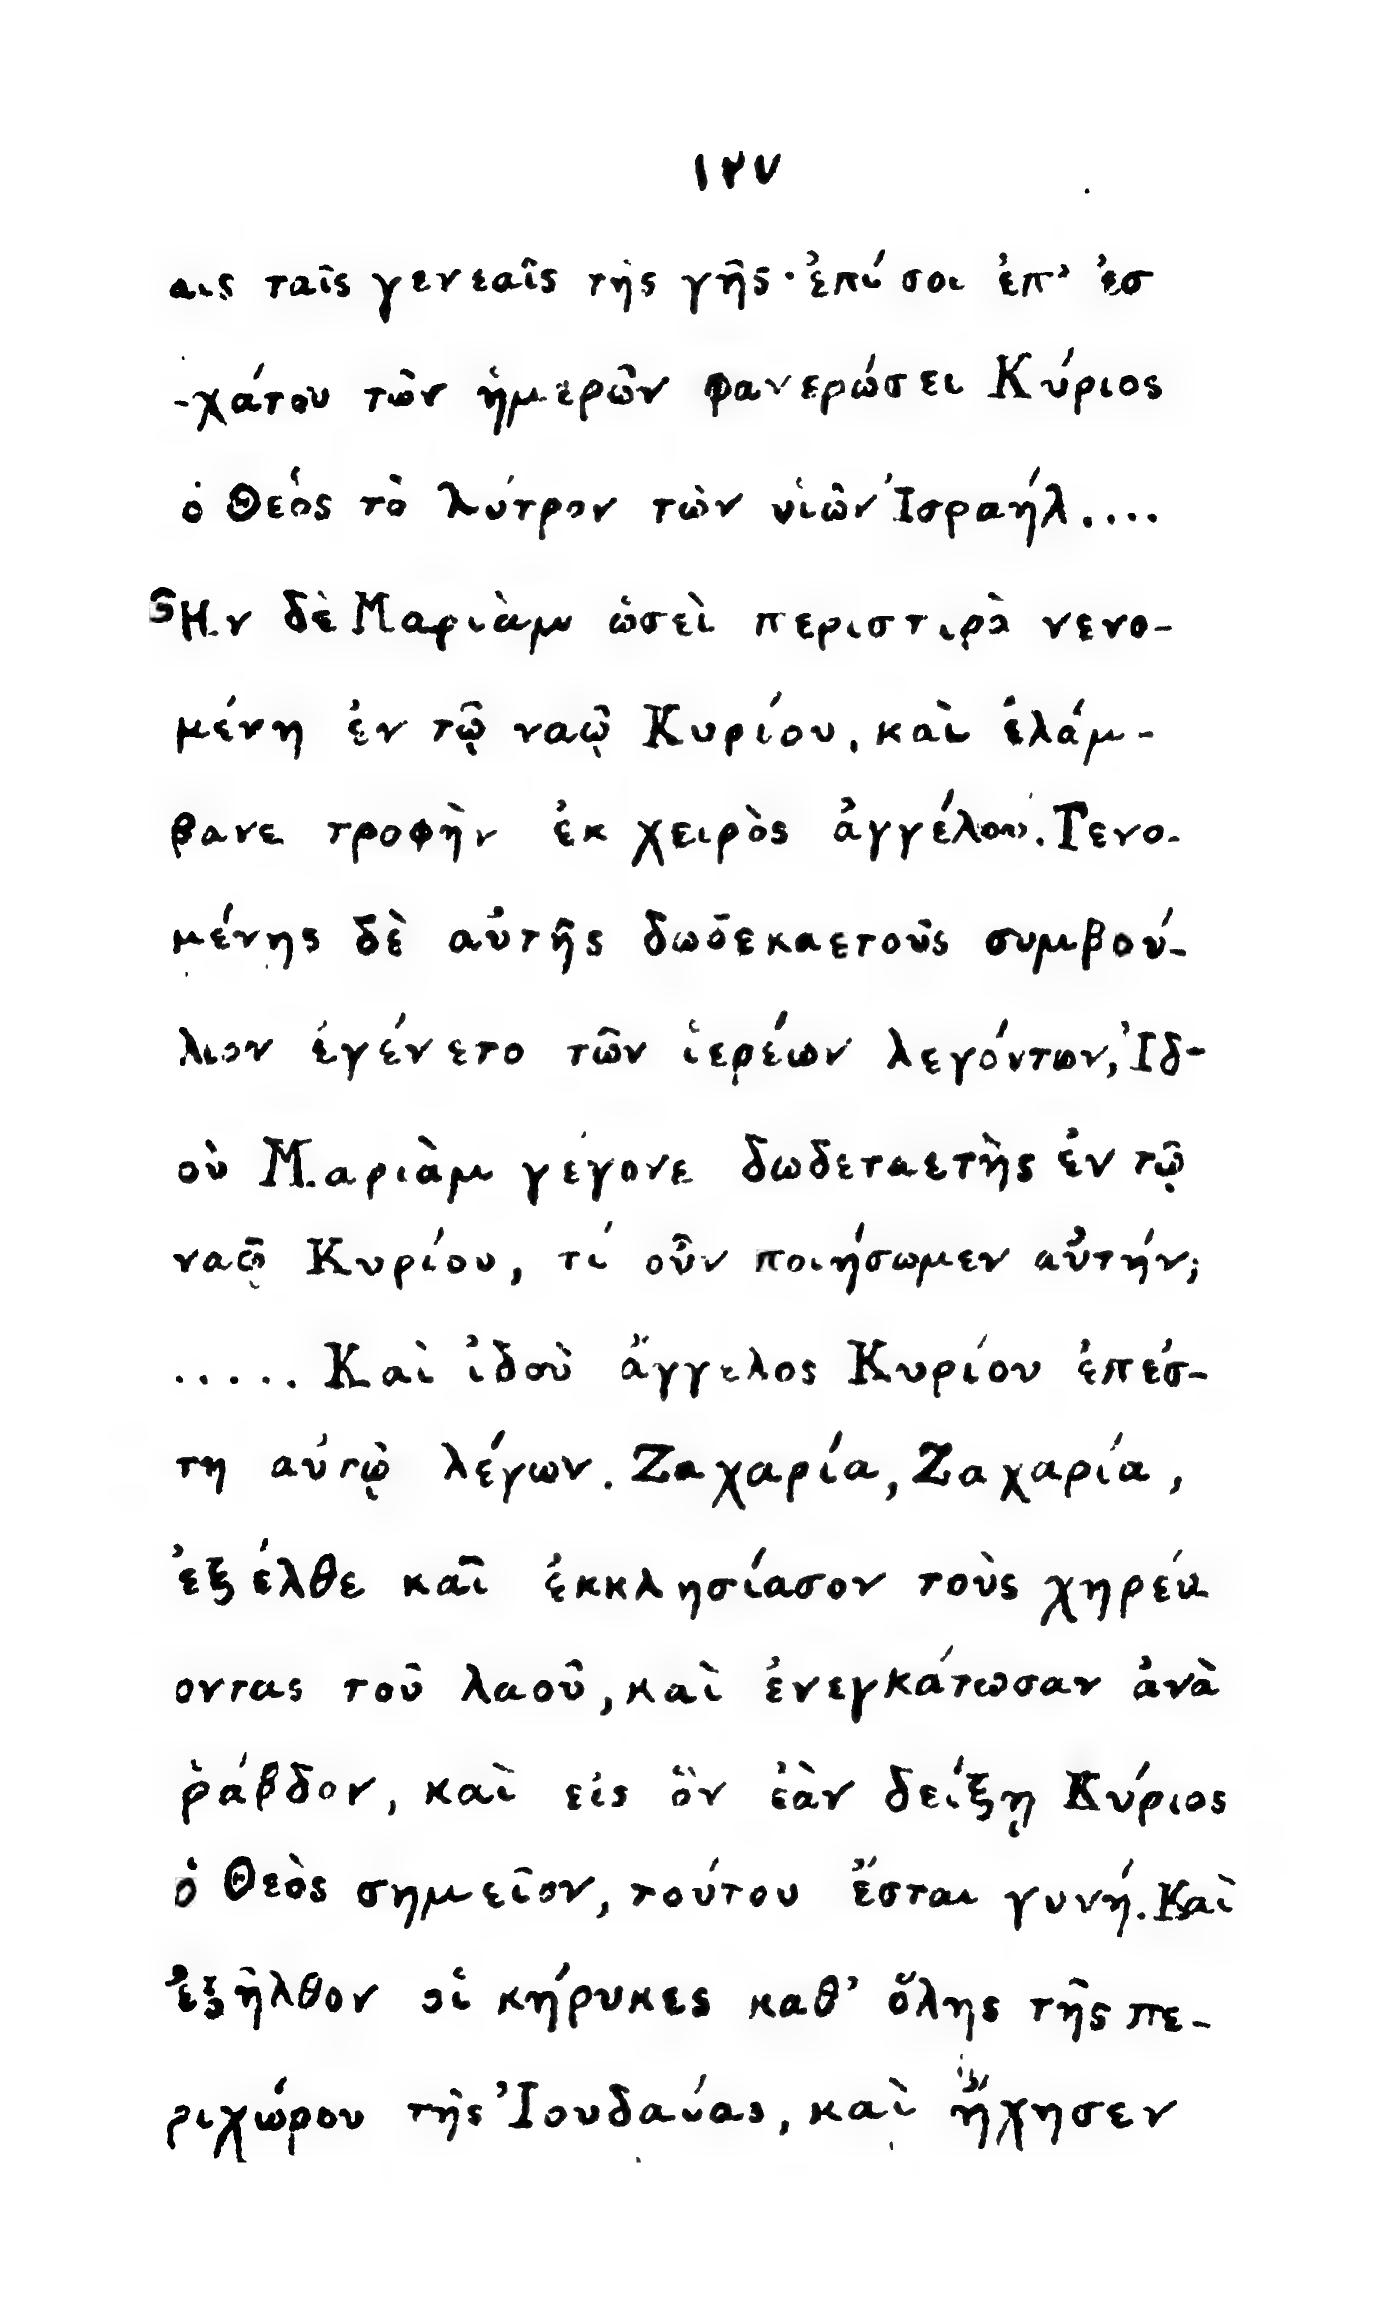 ١٢٧
αις ταῖς γενεαῖς τῆς γῆς· ἐπί σοι ἐπ' ἐσ
-χάτου τῶν ἡμερῶν φανερώσει Κύριος
ὁ Θεὸς τὸ λύτρον τῶν υἱῶν Ἰσραήλ....
Ἦν δὲ Μαριὰμ ὡσεὶ περιστιρὰ νενο-
μένη ἐν τῷ ναῷ Κυρίου, καὶ ἐλάμ-
βανε τροφὴν ἐκ χειρὸς ἀγγέλου. Γενο-
μένης δὲ αὐτῆς δωδεκαετοῦς συμβού-
λιον ἐγένετο τῶν ἱερέων λεγόντων, Ἰδ-
οὺ Μαριὰμ γέγονε δωδεταετὴς ἐν τῷ
ναῷ Κυρίου, τί οὖν ποιήσωμεν αὐτήν;
..... Καὶ ἰδοὺ ἄγγελος Κυρίου ἐπέσ-
τη αὐτῷ λέγων. Ζαχαρία, Ζαχαρία,
ἐξέλθε καῖ ἐκκλησίασον τοὺς χηρεύ
οντας τοῦ λαοῦ, καὶ ἐνεγκάτωσαν ἀνὰ
ῥάβδον, καὶ εἰς ὃν ἐὰν δείξῃ Κύριος
ὁ Θεὸς σημεῖον, τούτου ἔσται γυνή. Καὶ
ἐξῆλθον οἱ κήρυκες καθ' ὅλης τῆς πε-
ριχώρου τῆς Ἰουδαίας, καὶ ἤχησεν